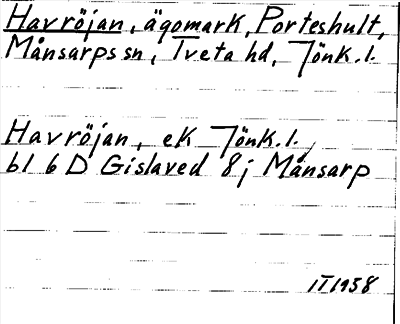 Havröjan, ägomark, Porteshult,
Månsarps sn, Tveta hd, Jönk. l.
Havröjan, ek Jönk. l.
bl 6 D Gislaved 8 j Månsarp
II 1958